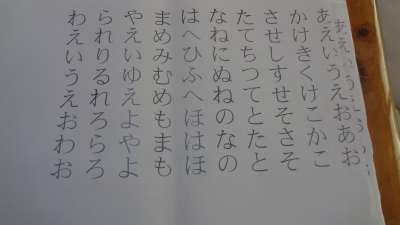 あえいう
あえいうえおあお
かけきくけこかこ
させしすせそさそ
たてちつてとたと
なねにぬねのなの
はへひふへほはほ
まめみむめもまも
やえいゆえよやよ
られりるれろらろ
わえいうえおわお